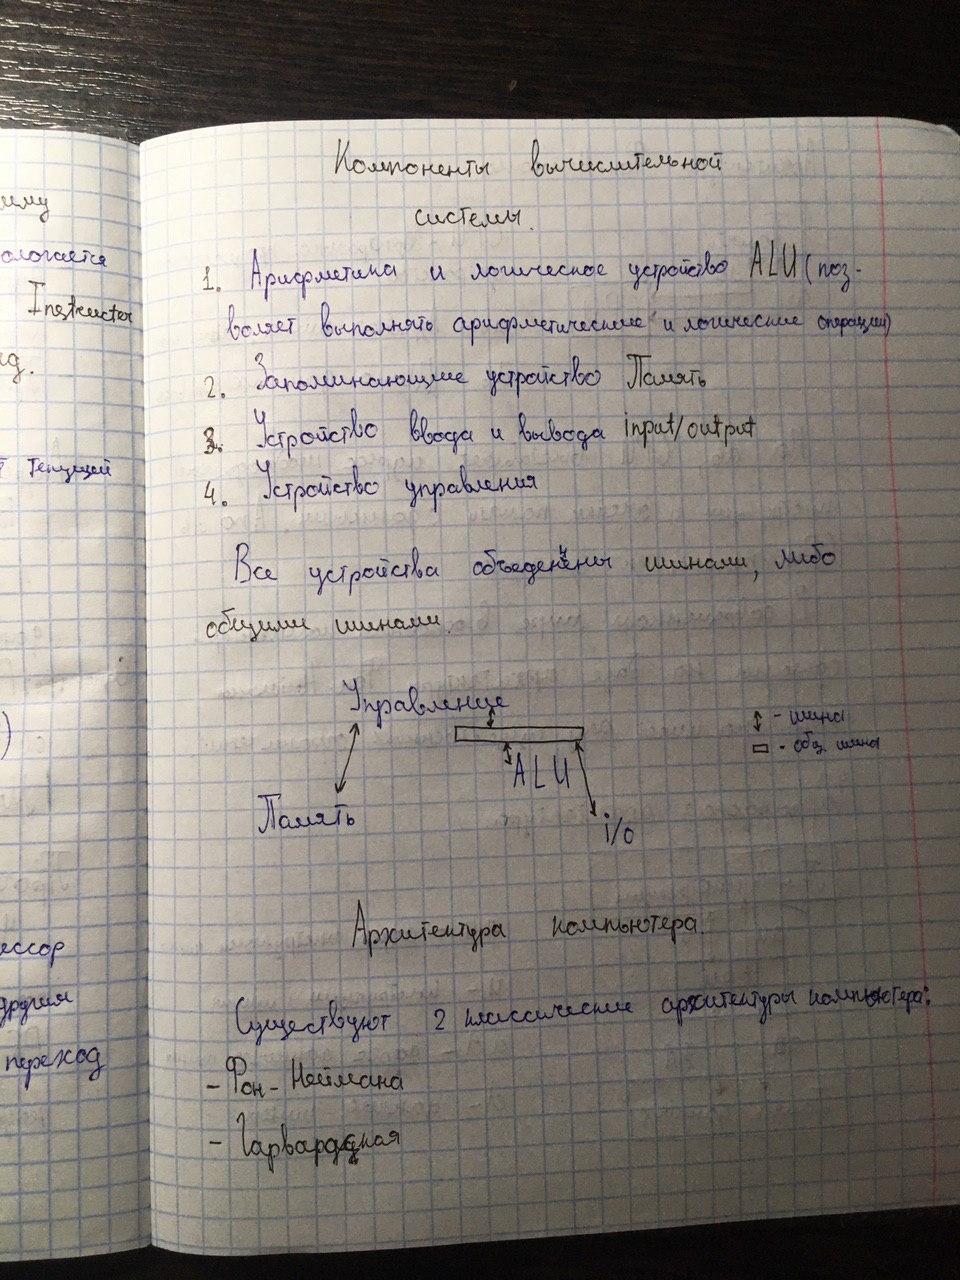 иму
ологается
Instructor
д.
т текущей
)
ессор
другия
переход
Компоненты вычислительной
системы.
1. Арифметика и логическое устройство ALU (поз-
воляет выполнять арифметические и логические операции)
2. Запоминающие устройство Память
3. Устройство ввода и вывода input/output
4. Устройство управления
Все устройства объеденены шинами, либо
общими шинами.
Управление
- шина
- общ. шина
ALU
Память
i/o
Архитектура компьютера.
Существуют 2 классические архитектуры компьютера:
- Фон-Неймана
- Гарвардская